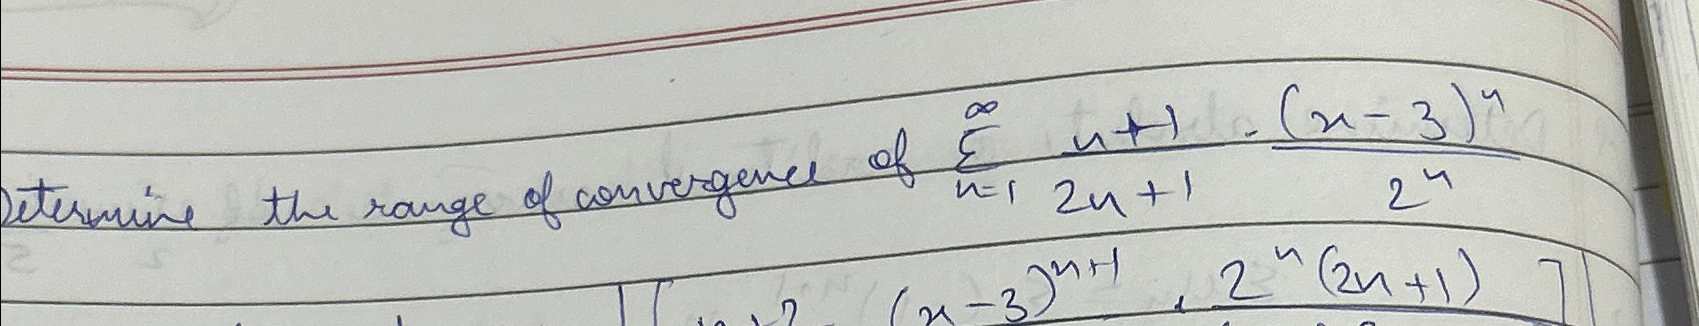 Determine the range of convergence of ∑_{n=1}^{∞} \frac{n+1}{2n+1} . \frac{(x-3)^n}{2^n}
(x-3)^{n+1} . 2^n (2n+1)